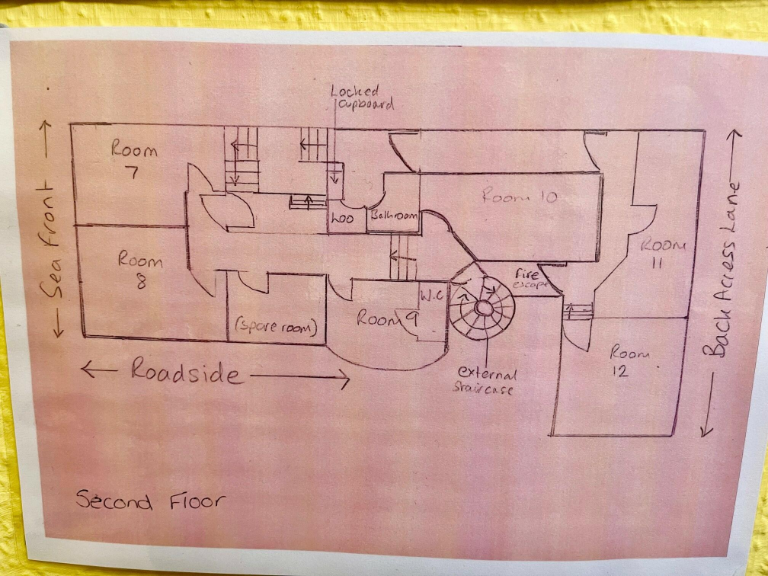 Locked
Cupboard
Room
7
Sea Front
Room
8
Loo
Bathroom
Room 10
Room
11
Back Access Lane
fire
escape
(spare room)
Room 9
W.C
Room
12
external
staircase
Roadside
Second Floor